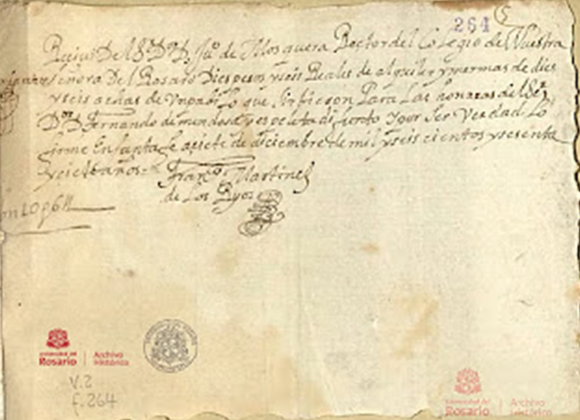 264
Reciui Del Sr Dr D. Ju.o de Mosquera Rector del Colegio de Nuestra
señora Del Rosario Dies pesos y seis Reales de alquiler y mermas de dies
y seis achas de Vn pabilo que sirbieron Para Las honrras del Sr
Dn Fernando de mendosa difunto y por Ser Verdad Lo
firme En santa fe a siete de diciembre de mil y seis cientos y sesenta
años
Franco Martines
de Los Reyes
Universidad del
Rosario
Archivo
Histórico
V.2
f.264
Universidad del
Rosario
Archivo
Histórico